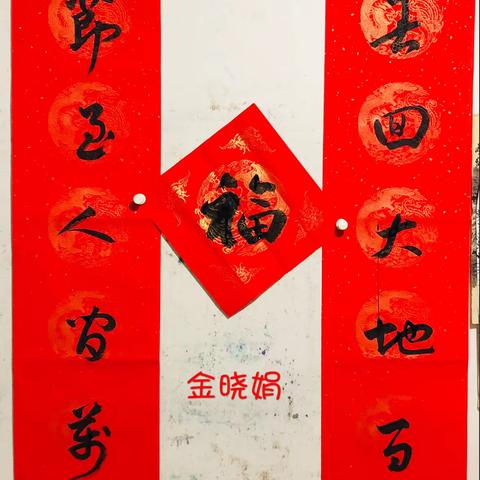 春回大地百
節至人間萬
福
金晓娟